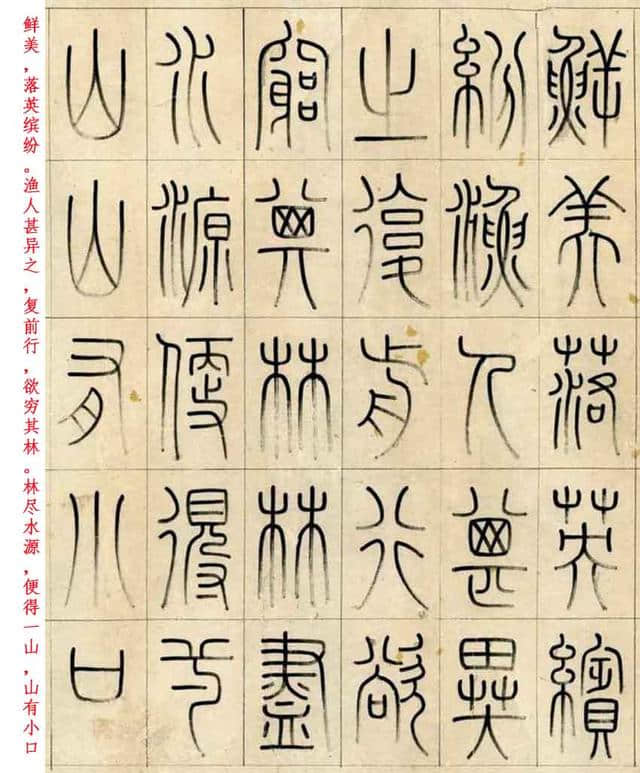 鮮美落英繽
紛漁人甚異
之復前行欲
窮其林林盡
水源便得一
山山有小口
鲜美，落英缤纷。渔人甚异之，复前行，欲穷其林。林尽水源，便得一山，山有小口